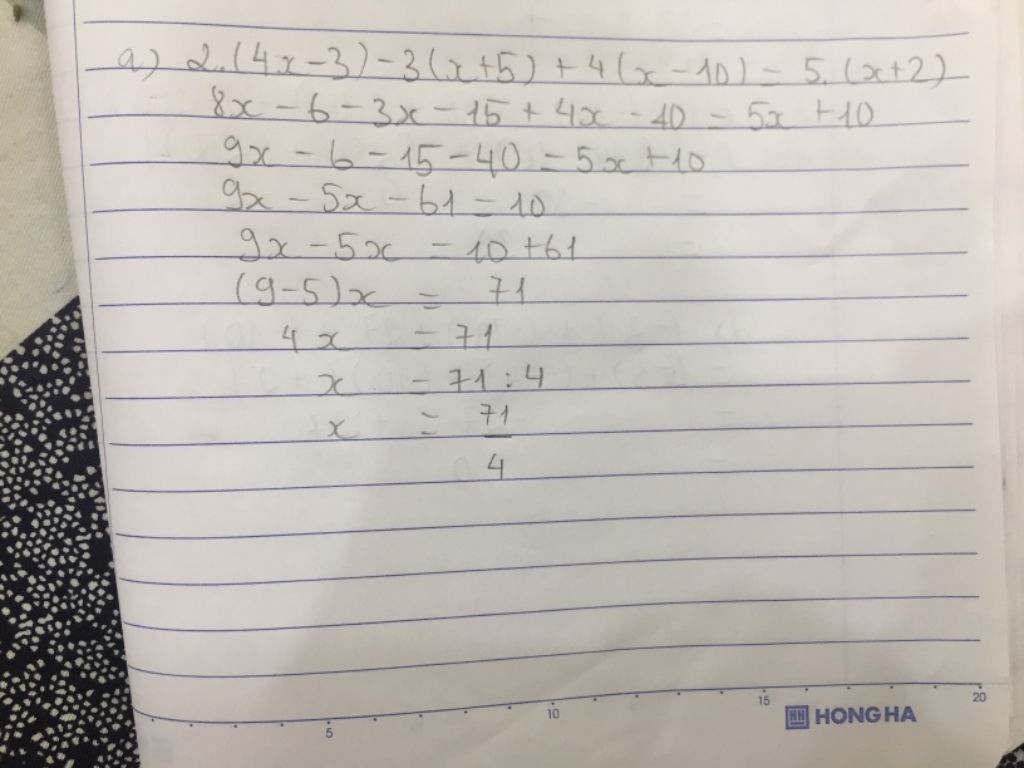 a) 2.(4x-3)-3(x+5)+4(x-10)=5.(x+2)
8x-6-3x-15+4x-40=5x+10
9x-6-15-40=5x+10
9x-5x-61=10
9x-5x=10+61
(9-5)x=71
4x=71
x=71:4
x=71/4
5 10 15 20
HONG HA